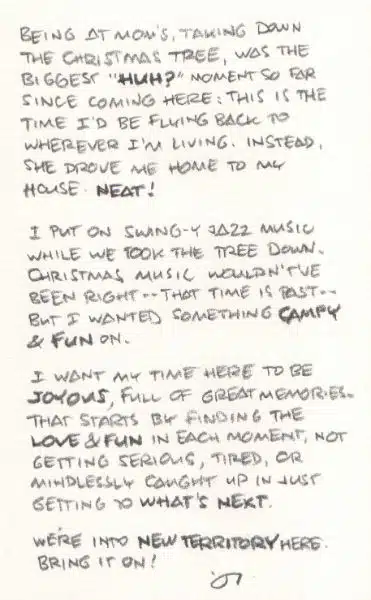 BEING AT MOM'S, TAKING DOWN
THE CHRISTMAS TREE, WAS THE
BIGGEST "HUH?" MOMENT SO FAR
SINCE COMING HERE: THIS IS THE
TIME I'D BE FLYING BACK TO
WHEREVER I'M LIVING. INSTEAD,
SHE DROVE ME HOME TO MY
HOUSE. NEAT!
I PUT ON SWING-Y JAZZ MUSIC
WHILE WE TOOK THE TREE DOWN.
CHRISTMAS MUSIC WOULDN'T'VE
BEEN RIGHT -- THAT TIME IS PAST --
BUT I WANTED SOMETHING CAMPY
& FUN ON.
I WANT MY TIME HERE TO BE
JOYOUS, FULL OF GREAT MEMORIES.
THAT STARTS BY FINDING THE
LOVE & FUN IN EACH MOMENT, NOT
GETTING SERIOUS, TIRED, OR
MINDLESSLY CAUGHT UP IN JUST
GETTING TO WHAT'S NEXT.
WE'RE INTO NEW TERRITORY HERE.
BRING IT ON!